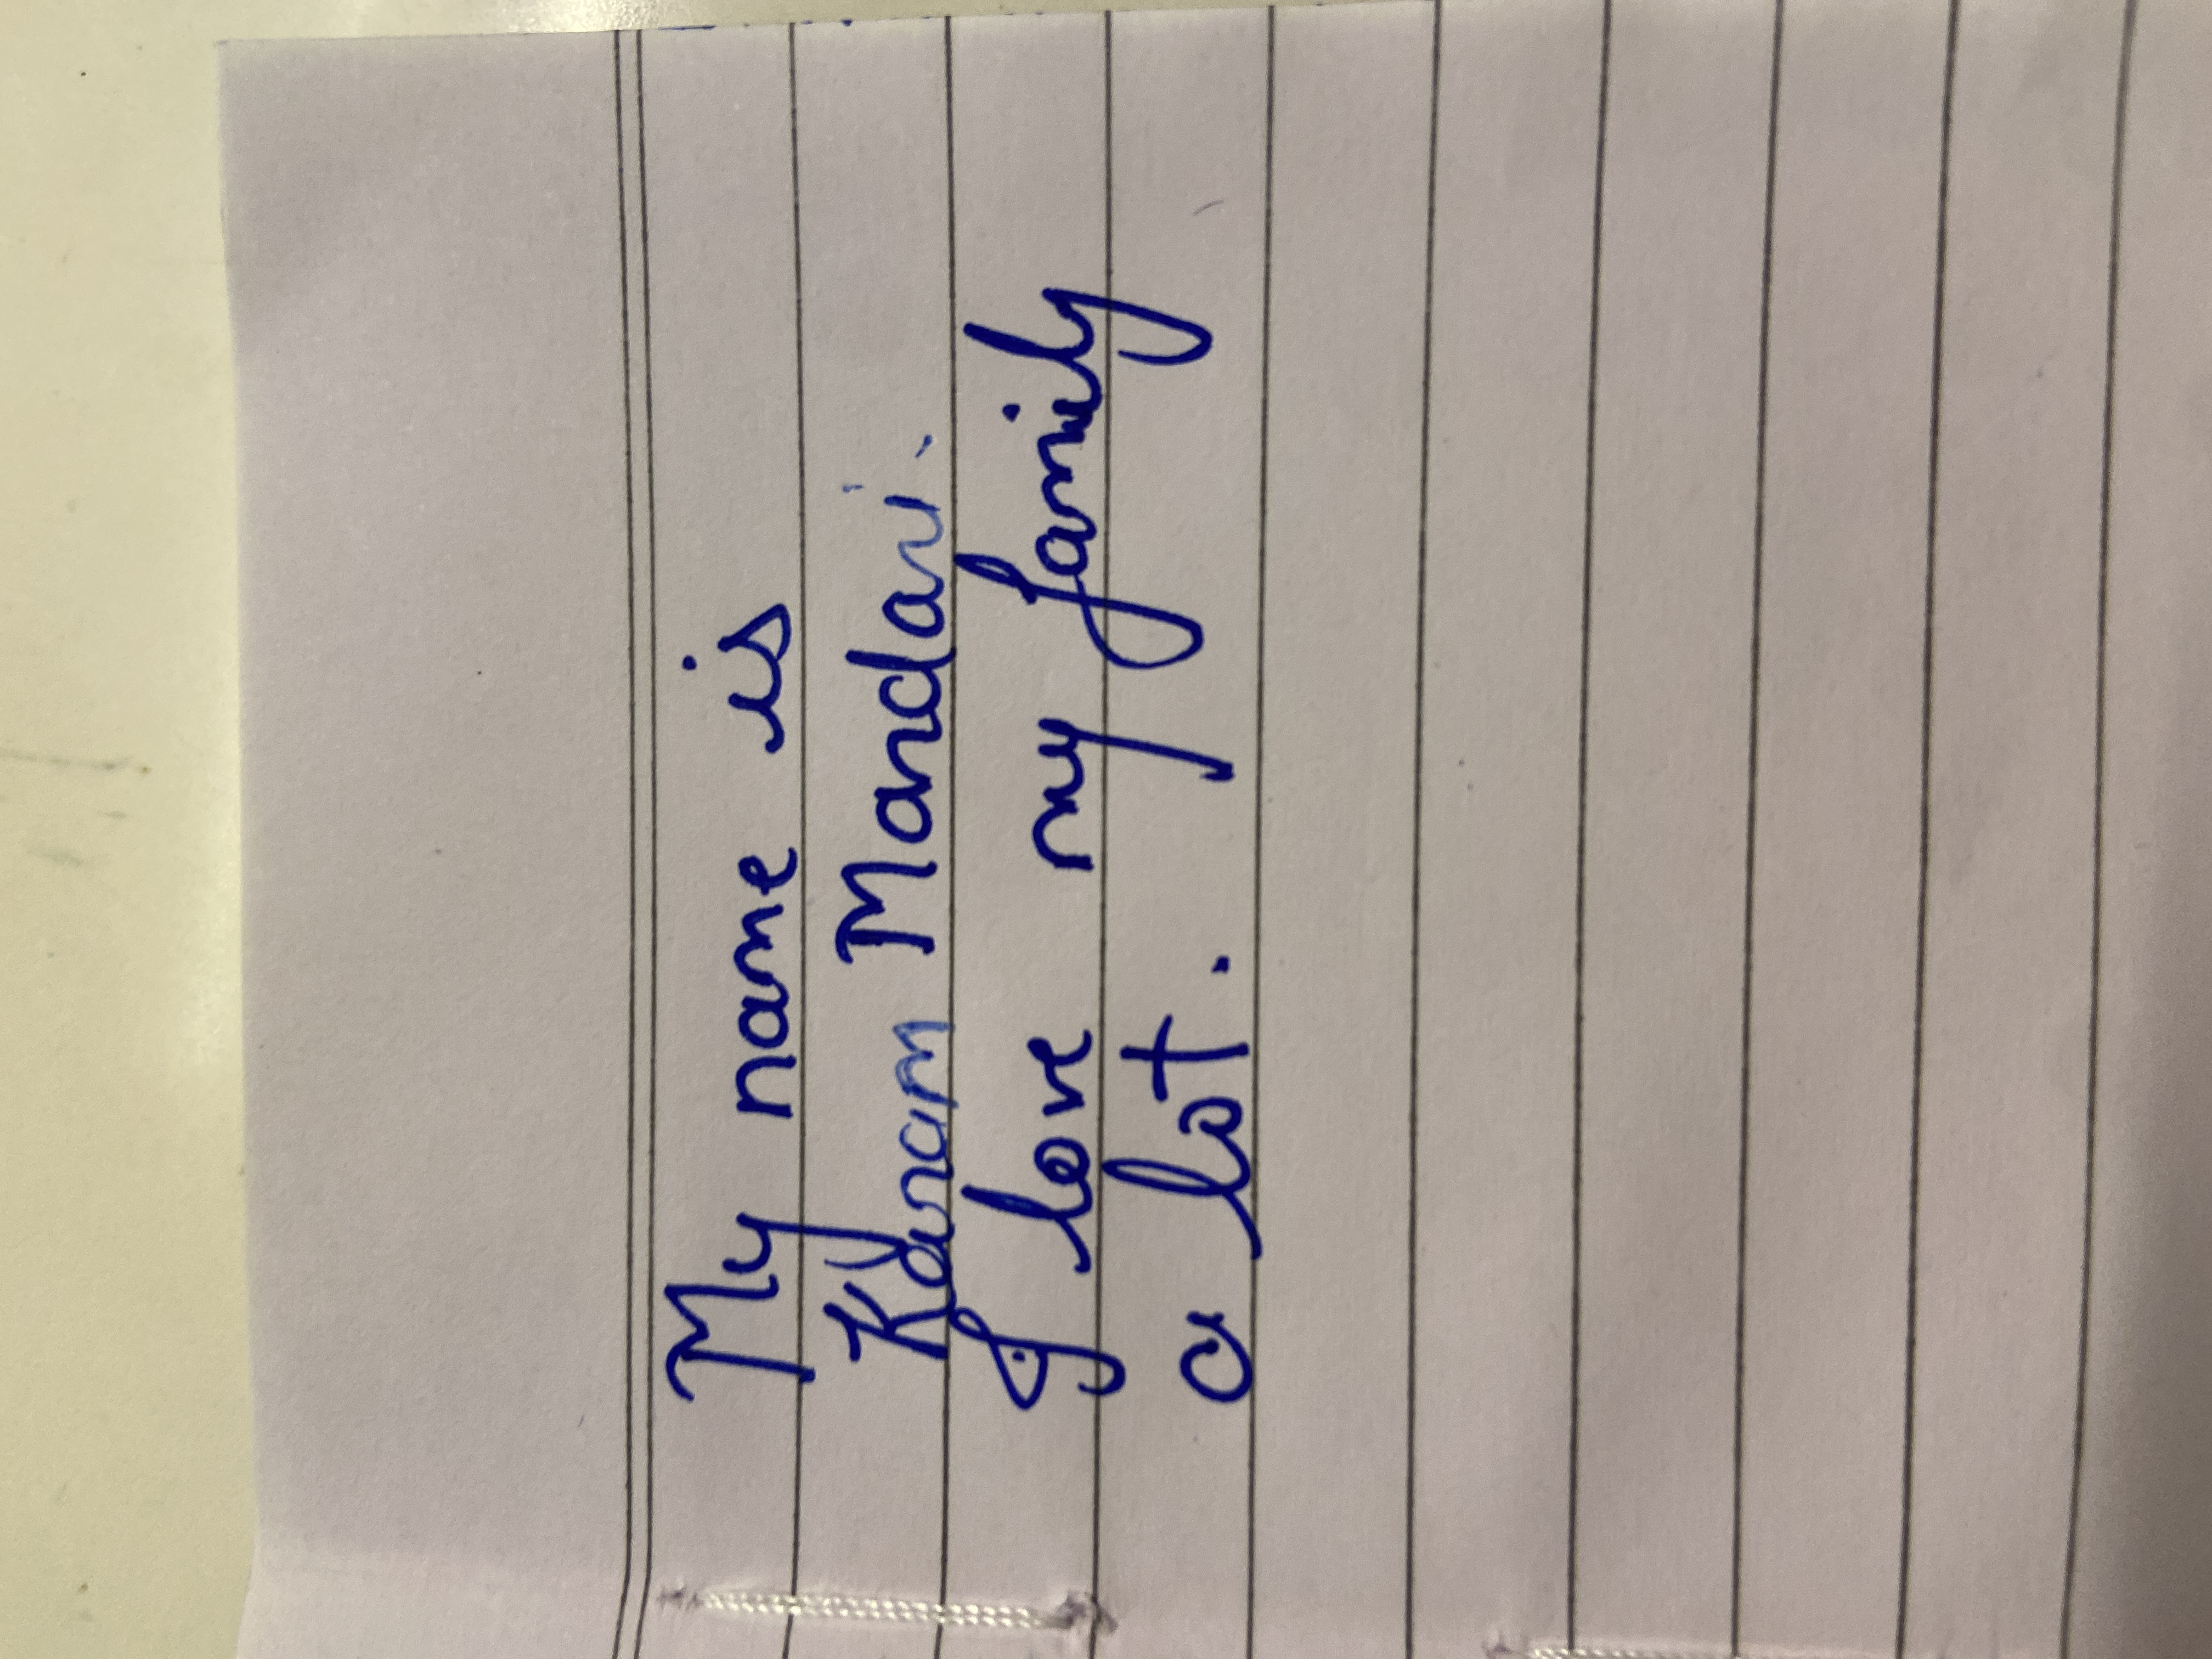 My name is
Karam Mandani.
I love my family
a lot.